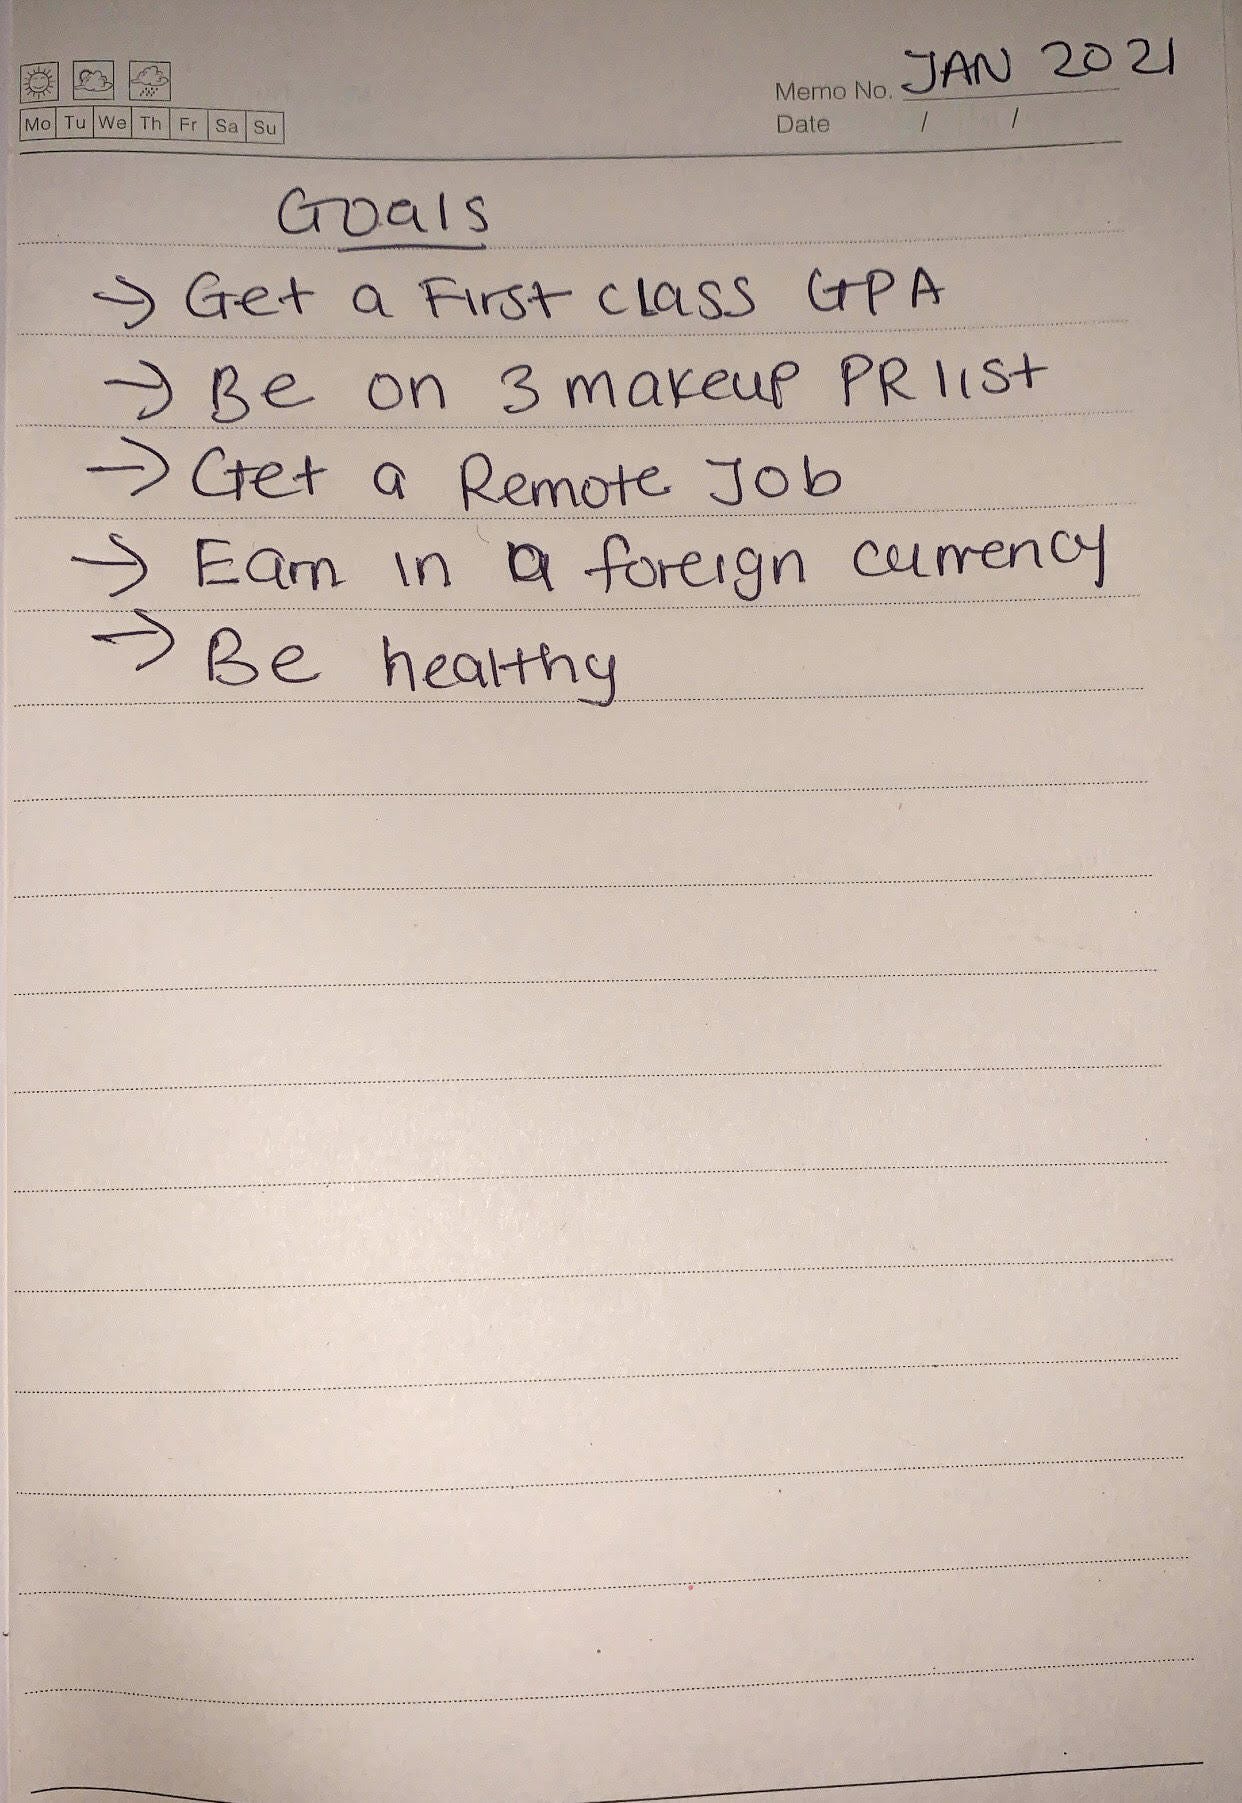 Mo Tu We Th Fr Sa Su
Memo No. JAN 2021
Date / /
Goals
→ Get a First class GPA
→ Be on 3 makeup PR list
→ Get a Remote Job
→ Earn in a foreign currency
→ Be healthy